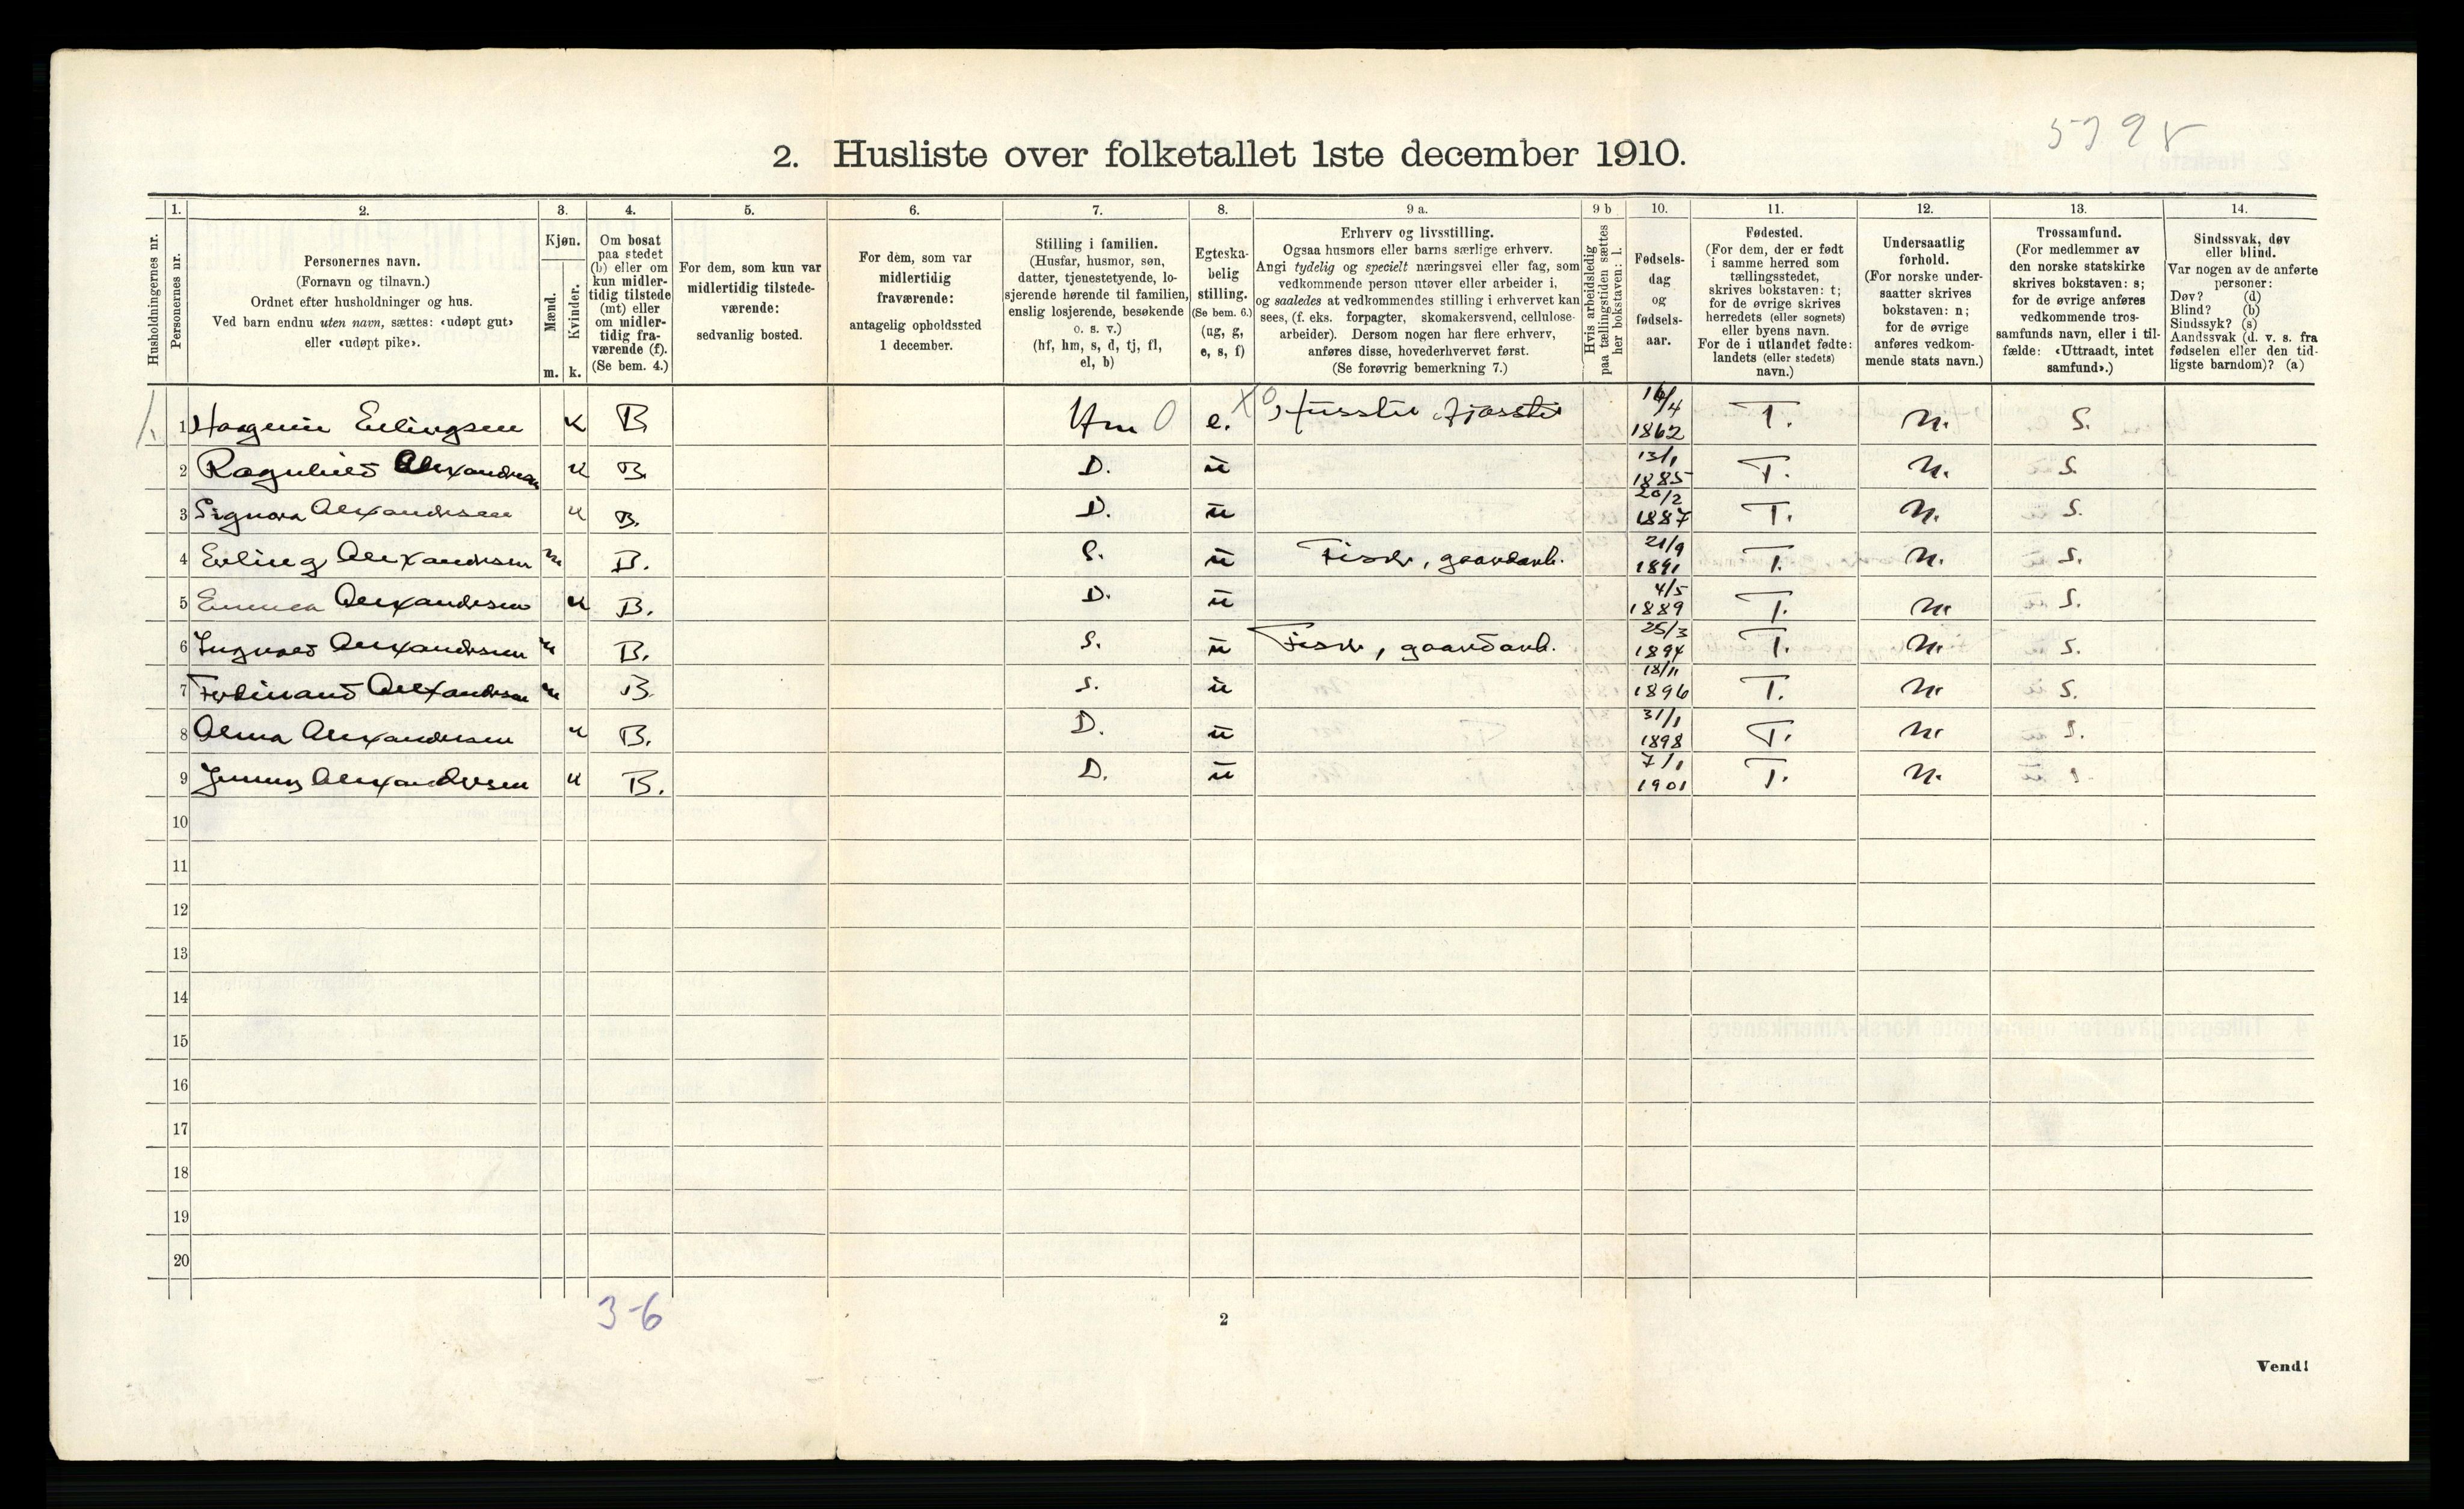 5798
2. Husliste over folketallet 1ste december 1910.
Husholdningernes nr.
1.
Personernes nr.
2.
Personernes navn.
(Fornavn og tilnavn.)
Ordnet efter husholdninger og hus.
Ved barn endnu uten navn, sættes: «udøpt gut»
eller «udøpt pike».
3.
Kjøn.
Mænd.
Kvinder.
m. k.
4.
Om bosat
paa stedet
(b) eller om
kun midler-
tidig tilstede
(mt) eller
om midler-
tidig fra-
værende (f).
(Se bem. 4.)
5.
For dem, som kun var
midlertidig tilstede-
værende:
sedvanlig bosted.
6.
For dem, som var
midlertidig
fraværende:
antagelig opholdssted
1 december.
7.
Stilling i familien.
(Husfar, husmor, søn,
datter, tjenestetyende, lo-
sjerende hørende til familien,
enslig losjerende, besøkende
o. s. v.)
(hf, hm, s, d, tj, fl,
el, b)
8.
Egteska-
belig
stilling.
(Se bem. 6.)
(ug, g,
e, s, f)
9 a.
Erhverv og livsstilling.
Ogsaa husmors eller barns særlige erhverv.
Angi tydelig og specielt næringsvei eller fag, som
vedkommende person utøver eller arbeider i,
og saaledes at vedkommendes stilling i erhvervet kan
sees, (f. eks. forpagter, skomakersvend, cellulose-
arbeider). Dersom nogen har flere erhverv,
anføres disse, hovederhvervet først.
(Se forøvrig bemerkning 7.)
9 b
Hvis arbeidsledig
paa tællingstiden sættes
her bokstaven: l.
10.
Fødsels-
dag
og
fødsels-
aar.
11.
Fødested.
(For dem, der er født
i samme herred som
tællingsstedet,
skrives bokstaven: t;
for de øvrige skrives
herredets (eller sognets)
eller byens navn.
For de i utlandet fødte:
landets (eller stedets)
navn.)
12.
Undersaatlig
forhold.
(For norske under-
saatter skrives
bokstaven: n;
for de øvrige
anføres vedkom-
mende stats navn.)
13.
Trossamfund.
(For medlemmer av
den norske statskirke
skrives bokstaven: s;
for de øvrige anføres
vedkommende tros-
samfunds navn, eller i til-
fælde: «Uttraadt, intet
samfund».)
14.
Sindssvak, døv
eller blind.
Var nogen av de anførte
personer:
Døv? (d)
Blind? (b)
Sindssyk? (s)
Aandssvak (d. v. s. fra
fødselen eller den tid-
ligste barndom)? (a)
1. 1 Erlingsen K B Hm 0 e. X0 16/4 1862 T. N. S.
2 Ragnhild Alexandersen K B. D. ū 13/1 1885 T. N. S.
3 Signora Alexandersen K B. D. ū 20/2 1887 T. N. S.
4 Erling Alexandersen m B. S. ū Fisker, gaardarb. 21/9 1891 T. N. S.
5 Emma Alexandersen K B. D. ū 4/5 1889 T. N. S.
6 Ingvald Alexandersen m B. S. ū Fisker, gaardarb. 25/3 1894 T. N. S.
7 Ferdinand Alexandersen m B. S. ū 18/11 1896 T. N. S.
8 Alma Alexandersen K B. D. ū 31/1 1898 T. N. S.
9 Jenny Alexandersen K B. D. ū 7/1 1901 T. N. S.
10
11
12
13
14
15
16
17
18
19
20
3-6
2
Vend!